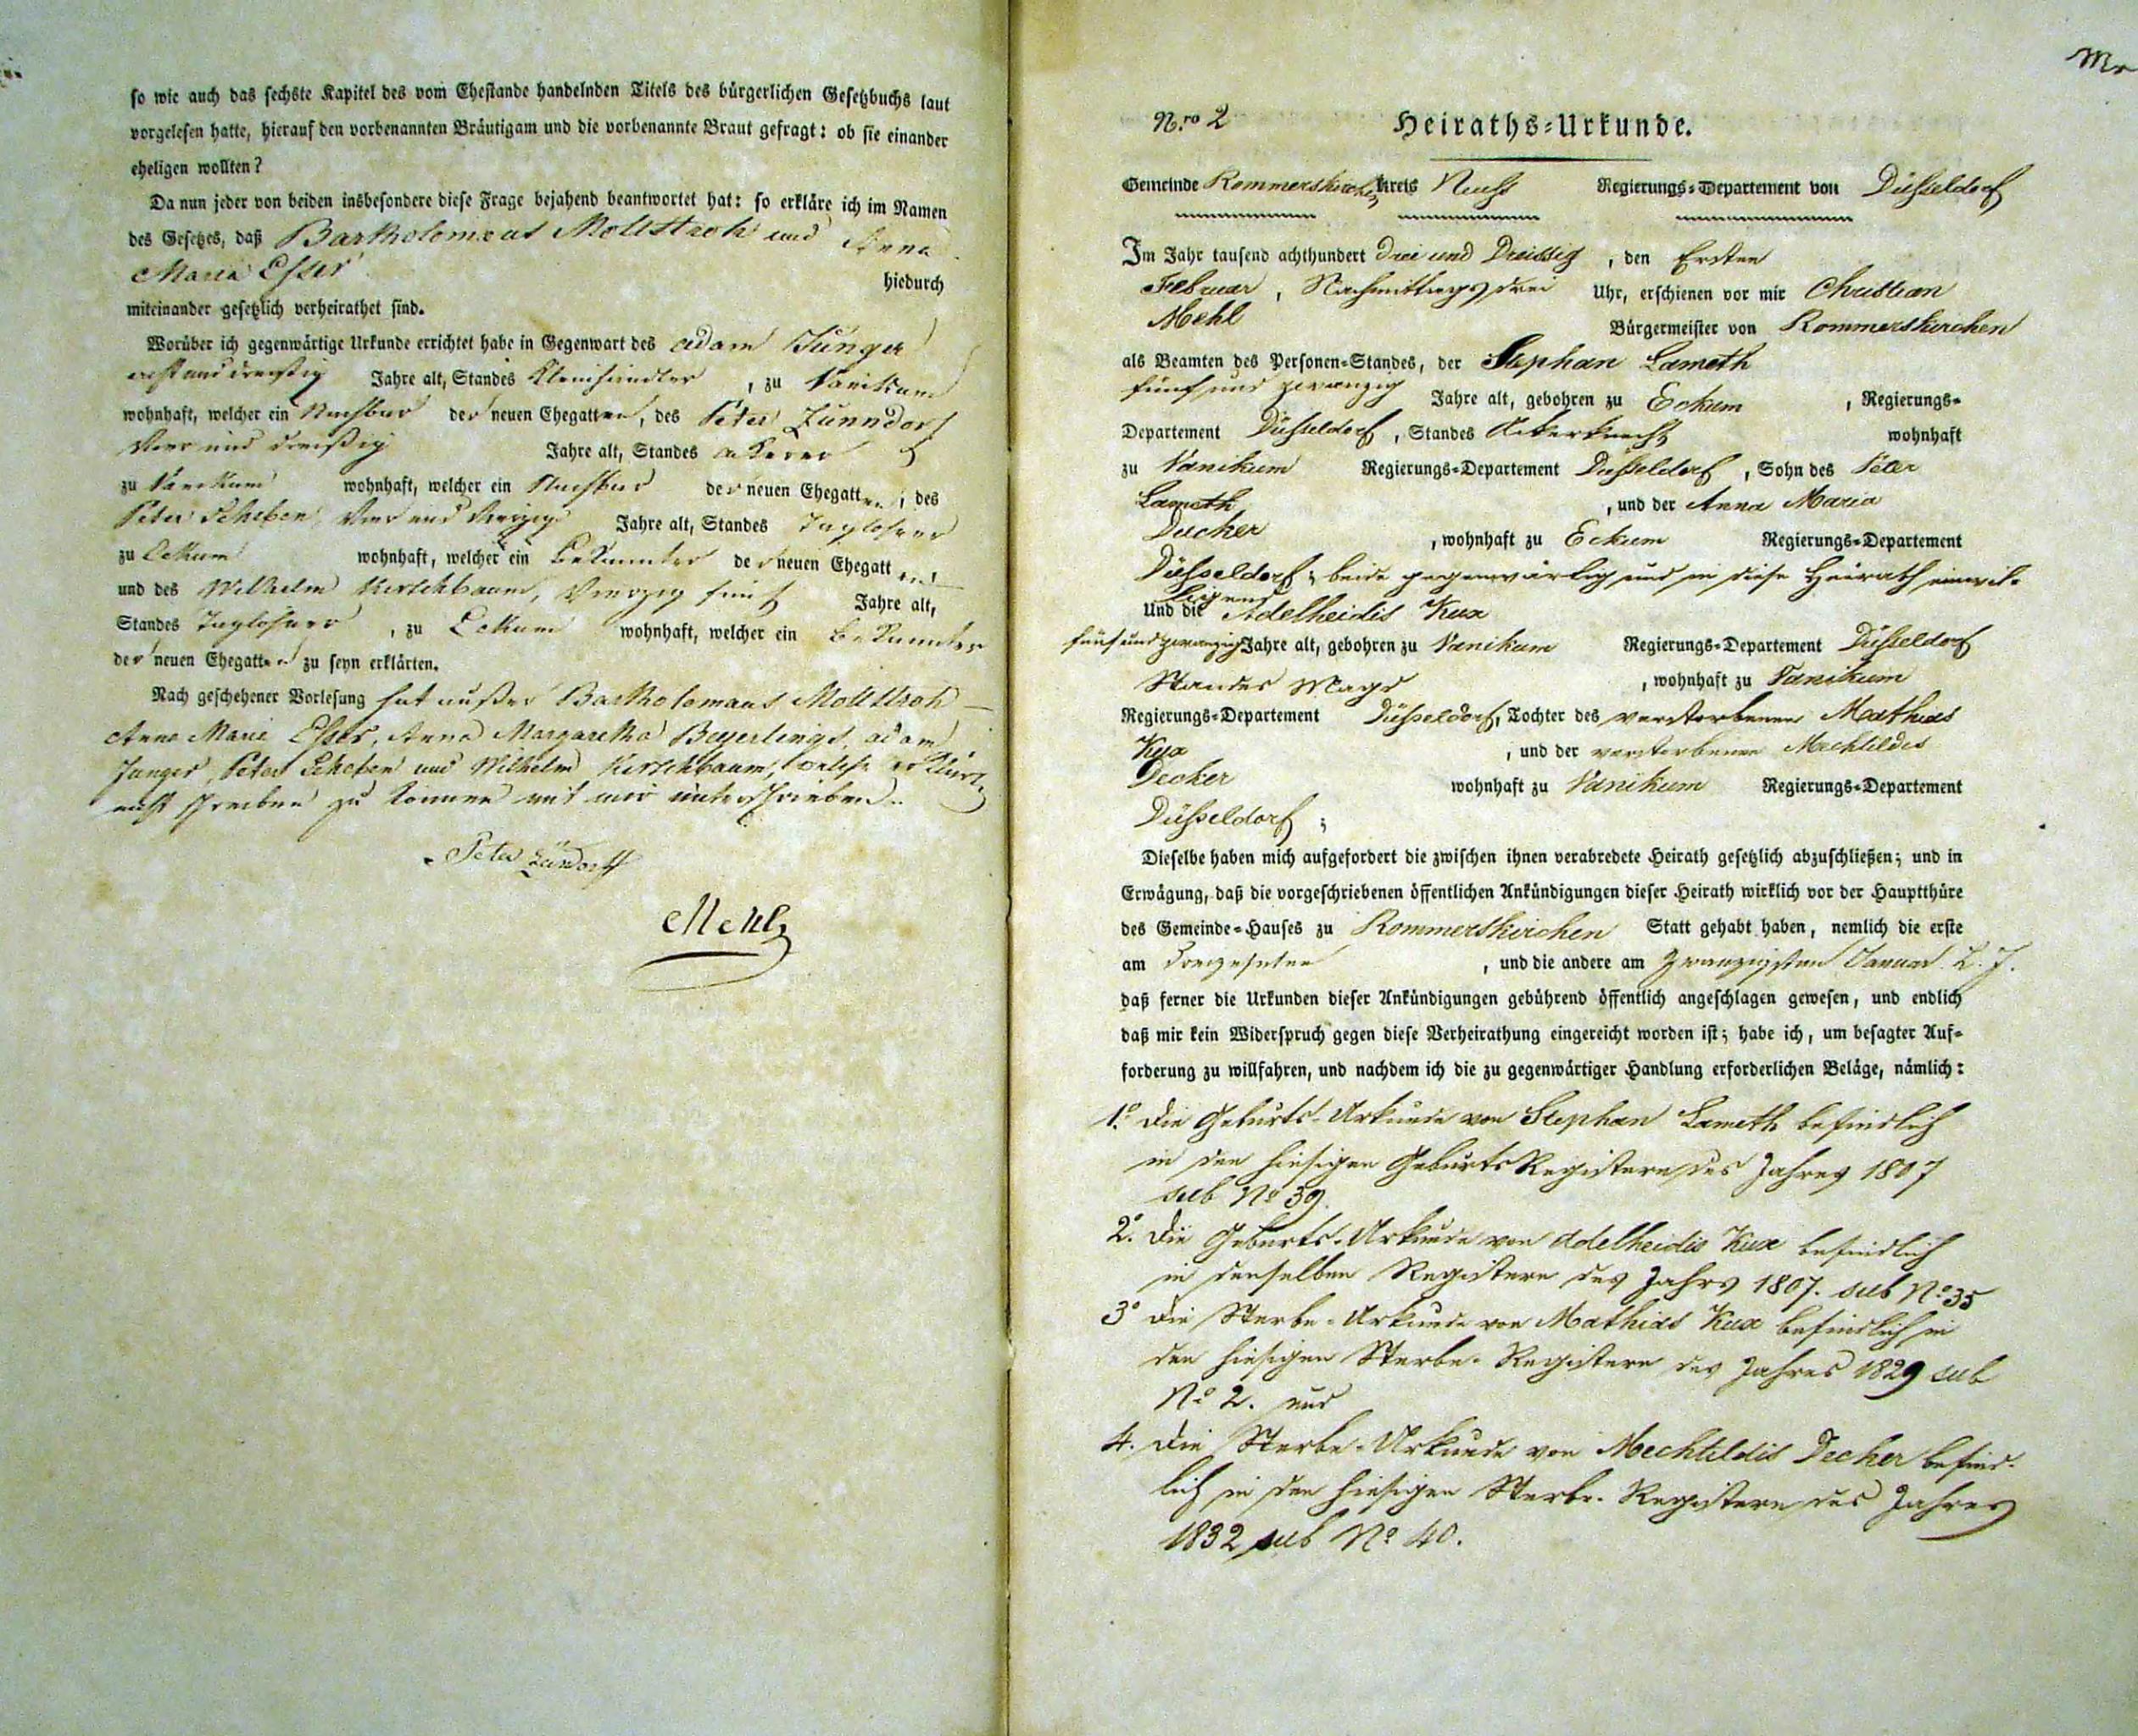 so wie auch das sechste Kapitel des vom Ehestande handelnden Titels des bürgerlichen Gesetzbuchs laut
vorgelesen hatte, hierauf den vorbenannten Bräutigam und die vorbenannte Braut gefragt: ob sie einander
eheligen wollten?
Da nun jeder von beiden insbesondere diese Frage bejahend beantwortet hat: so erkläre ich im Namen
des Gesetzes, daß Bartholomeus Mollstroh und Anna
Maria Esser hiedurch
miteinander gesetzlich verheirathet sind.
Worüber ich gegenwärtige Urkunde errichtet habe in Gegenwart des Adam Junger
acht und dreißig Jahre alt, Standes Kleinhändler, zu Vanikum
wohnhaft, welcher ein Nachbar der neuen Ehegatten, des Peter Zünndorf
Vier und dreißig Jahre alt, Standes Ackerer
zu Vanikum wohnhaft, welcher ein Nachbar der neuen Ehegatten, des
Peter Scheben, Vier und Vierzig Jahre alt, Standes Taglöhner
zu Eckum wohnhaft, welcher ein Bekannter der neuen Ehegatten
und des Wilhelm Kirschbaum, Vierzig fünf Jahre alt,
Standes Taglöhner, zu Eckum wohnhaft, welcher ein Bekannter
der neuen Ehegatten zu seyn erklärten.
Nach geschehener Vorlesung hat außer Bartholomaus Mollstroh
Anna Maria Esser, Anna Margaretha Beyerlings, Adam
Junger, Peter Scheben und Wilhelm Kirschbaum, welche erklärt,
nicht schreiben zu können mit mir unterschrieben.
Peter Zündorff
Mehl
Nro 2 Heiraths-Urkunde.
Gemeinde Rommerskirchen Kreis Neuss Regierungs-Departement von Düsseldorf
Im Jahr tausend achthundert drei und Dreissig, den Ersten
Februar, Nachmittags drei Uhr, erschienen vor mir Christian
Mehl Bürgermeister von Rommerskirchen
als Beamten des Personen-Standes, der Stephan Lameth
fünf und zwanzig Jahre alt, gebohren zu Eckum, Regierungs-
Departement Düsseldorf, Standes Ackerknecht wohnhaft
zu Vanikum Regierungs-Departement Düsseldorf, Sohn des Peter
Lameth, und der Anna Maria
Decher, wohnhaft zu Eckum Regierungs-Departement
Düsseldorf; beide gegenwärtig und in diese Heirath einwil-
ligend
Und die Adelheidis Kux
fünf und zwanzig Jahre alt, gebohren zu Vanikum Regierungs-Departement Düsseldorf
Standes Magd, wohnhaft zu Vanikum
Regierungs-Departement Düsseldorf, Tochter des verstorbenen Mathias
Kux, und der verstorbenen Mechtildis
Decker wohnhaft zu Vanikum Regierungs-Departement
Düsseldorf;
Dieselbe haben mich aufgefordert die zwischen ihnen verabredete Heirath gesetzlich abzuschließen; und in
Erwägung, daß die vorgeschriebenen öffentlichen Ankündigungen dieser Heirath wirklich vor der Hauptthüre
des Gemeinde-Hauses zu Rommerskirchen Statt gehabt haben, nemlich die erste
am dreizehnten, und die andere am zwanzigsten Januar l. J.
daß ferner die Urkunden dieser Ankündigungen gebührend öffentlich angeschlagen gewesen, und endlich
daß mir kein Widerspruch gegen diese Verheirathung eingereicht worden ist; habe ich, um besagter Auf-
forderung zu willfahren, und nachdem ich die zu gegenwärtiger Handlung erforderlichen Beläge, nämlich:
1.º die Geburts-Urkunde von Stephan Lameth befindlich
in den hiesigen Geburts Registern des Jahres 1807
sub Nº 39.
2.º die Geburts-Urkunde von Adelheidis Kux befindlich
in denselben Registern des Jahrs 1807. sub Nº 35
3º die Sterbe-Urkunde von Mathias Kux befindlich in
den hiesigen Sterbe-Registern des Jahres 1829 sub
Nº 2. und
4. die Sterbe-Urkunde von Mechtildis Decher befind-
lich in den hiesigen Sterbe-Registern des Jahres
1832 sub Nº 40.